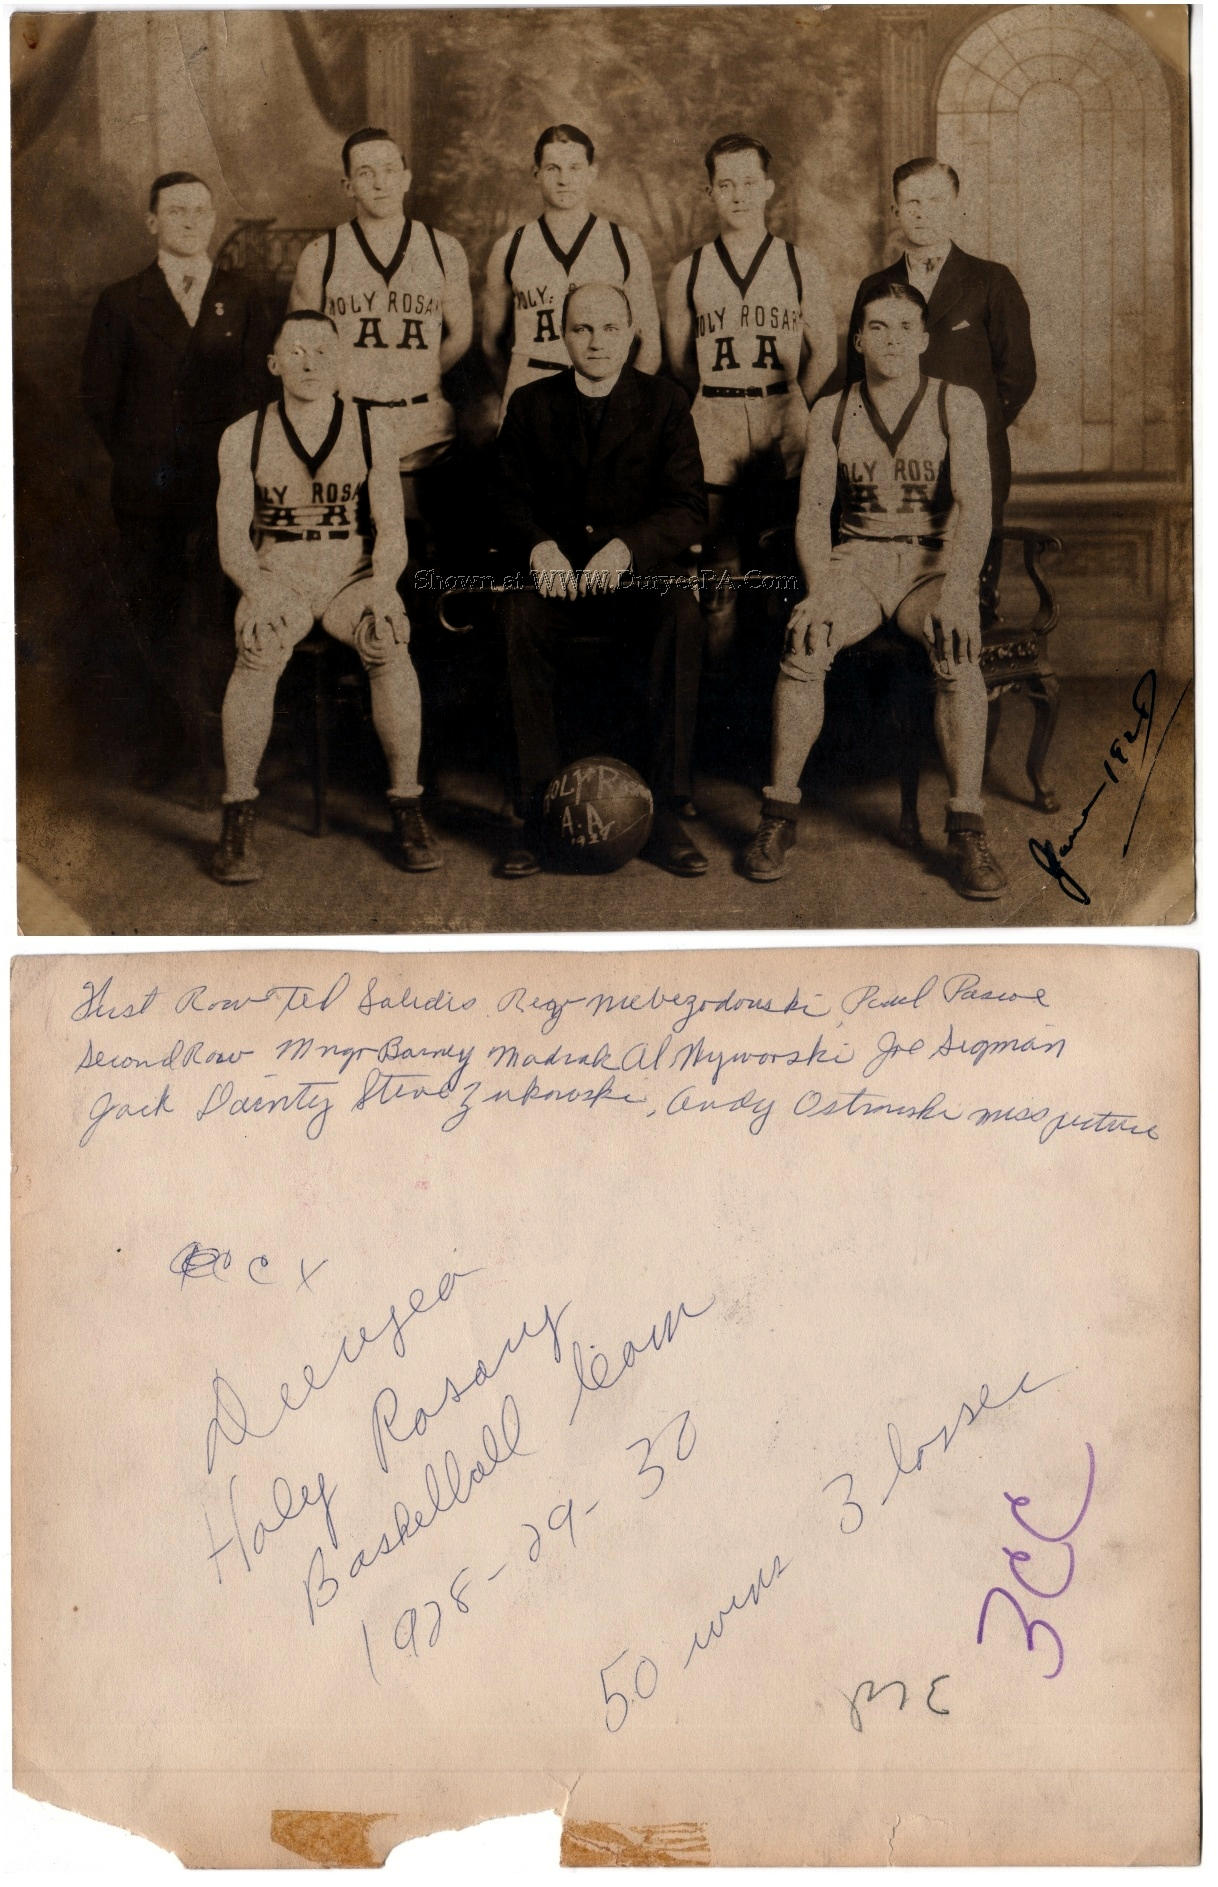 HOLY ROSAR
AA
OLY.
A
OLY ROSAR
AA
LY ROSA
AA
OLY ROSA
AA
Shown at WWW.DuryeaPA.Com
HOLY ROS
A.A.
Jan
First Row Ted Saludis Rev Paul Pascoe
Second Row Mngr Barney Madrak Al Wyworski Joe Sigman
Jack Dainty Steve Zukowski, Andy Ostrowski miss picture
CC X
Duryea
Holy Rosary
Basketball team
1928-29-30
50 wins 3 losses
3CC